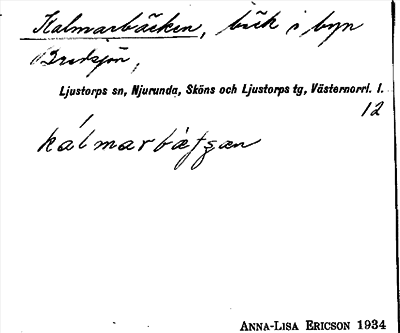 Kalmarbäcken, bäck i byn
Bredsjön,
Ljustorps sn, Njurunda, Sköns och Ljustorps tg, Västernorrl. l.
12
kálmarbæʃʒæn
ANNA-LISA ERICSON 1934